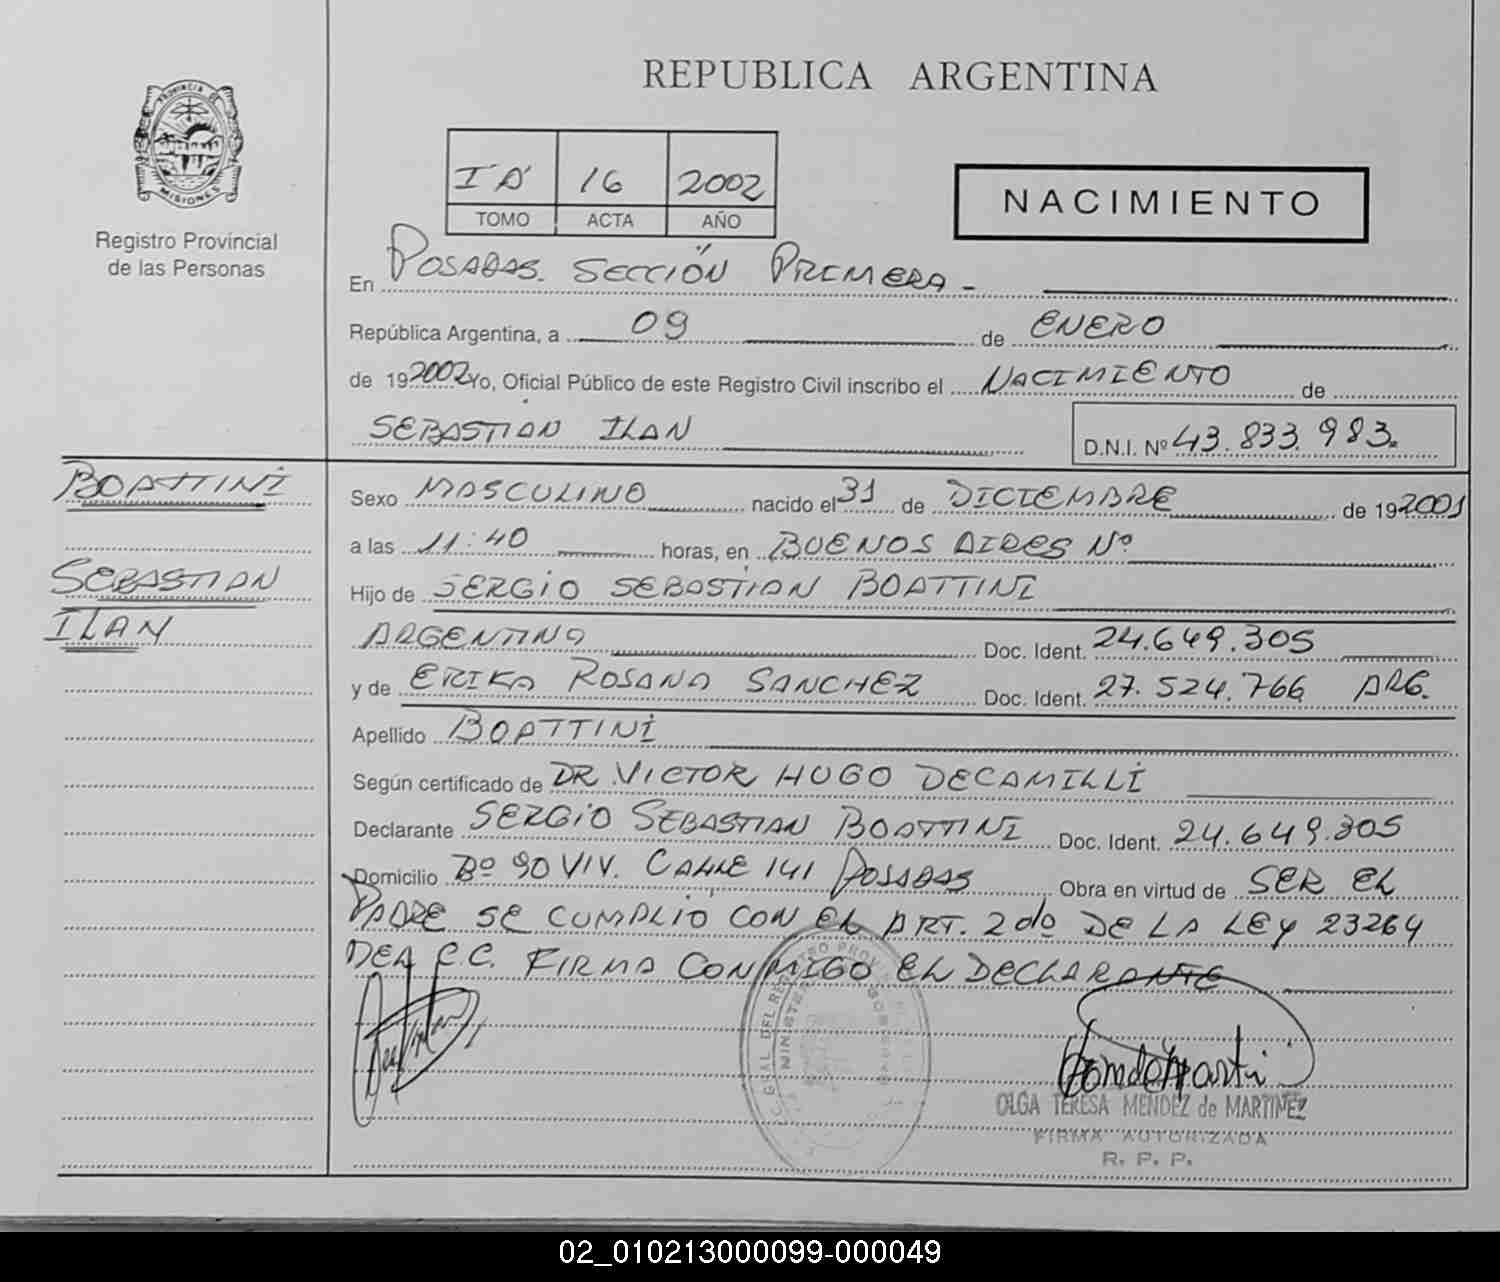 REPUBLICA ARGENTINA
PROVINCIA DE
MISIONES
Registro Provincial
de las Personas
I A 16 2002
TOMO ACTA AÑO
NACIMIENTO
En POSADAS. SECCIÓN PRIMERA -
República Argentina, a 09 de ENERO
de 192002 Yo, Oficial Público de este Registro Civil inscribo el NACIMIENTO de
SEBASTIÁN ILAN D.N.I. Nº 43.833.983.
BOATTINI
Sexo MASCULINO nacido el 31 de DICIEMBRE de 192001
a las 11:40 horas, en BUENOS AIRES Nº
SEBASTIAN
Hijo de SERGIO SEBASTIAN BOATTINI
ILAN
ARGENTINO Doc. Ident. 24.649.305
y de ERIKA ROSANA SANCHEZ Doc. Ident. 27.524.766 ARG.
Apellido BOATTINI
Según certificado de DR. VICTOR HUGO DECAMILLI
Declarante SERGIO SEBASTIAN BOATTINI Doc. Ident. 24.649.305
Domicilio Bº 90 VIV. CALLE 141 POSADAS Obra en virtud de SER EL
PADRE SE CUMPLIÓ CON EL ART. 2do DE LA LEY 23264
DEL C.C. FIRMA CONMIGO EL DECLARANTE
OLGA TERESA MENDEZ de MARTINEZ
FIRMA AUTORIZADA
R. P. P.
02_010213000099-000049